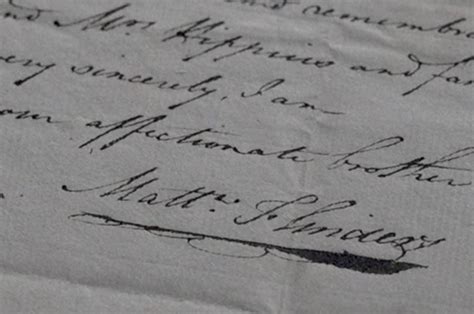 and remembra
and Mrs. Hippius and fa
ery sincerely, I am
our affectionate brother
Mattw. Flinders